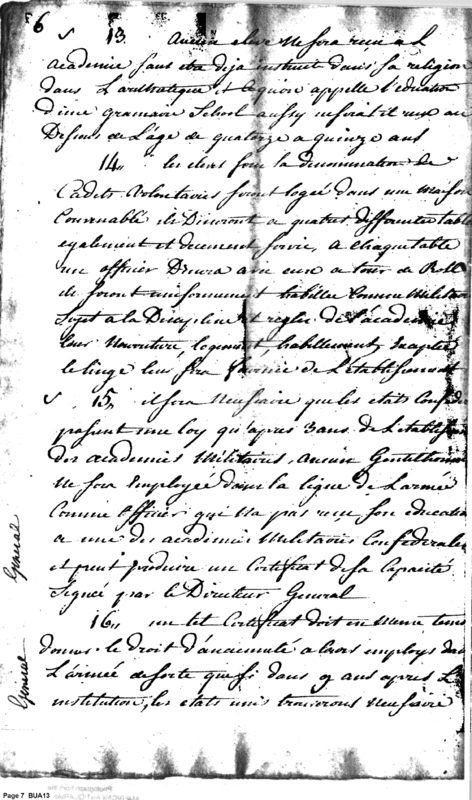 6
S 13. Aucun eleve ne sera recu a L
academie sans etre deja instruit dans sa religion
dans L'arithmetique, et ce qu'on appelle l'education
d'une gramaire School aussy ne serat il recu au
Desious de L'age de quatorze a quinze ans
14,, les eleves sous la denomination de
Cadets Volontaires seront logée dans une maison
Convenable ils Dineront a quatres differentes table
egalement et decement servie, a chaque table
un officier Dinera avec eux a tour de Roll
ils seront uniformement habillee comme Militair
Sujet a la Discipline et regles de l'academie
leur Nouriture, logement, habillement, excepté
le linge leur sera fournie de L'etablissement
S 15,, il sera Necessaire que les etats Confede
passent une loy qu'apres 3 ans de L'etablissem
des academies Militaires, aucun Gentilhomme
ne soit Employée dans la ligne de L'armee
Comme officier qui n'a pas recu son education
a une des academies Militaires Confederales
et peut produire un Certificat de sa Capacité
Signée par le Directeur General
General
16,, un tel Certificat doit en meme tems
donner le droit d'anciennete a leurs employs dans
L'armée de sorte que si dans 9 ans apres L
institution, les etats unis trouverons necessaire
General
Page 7 BUA13